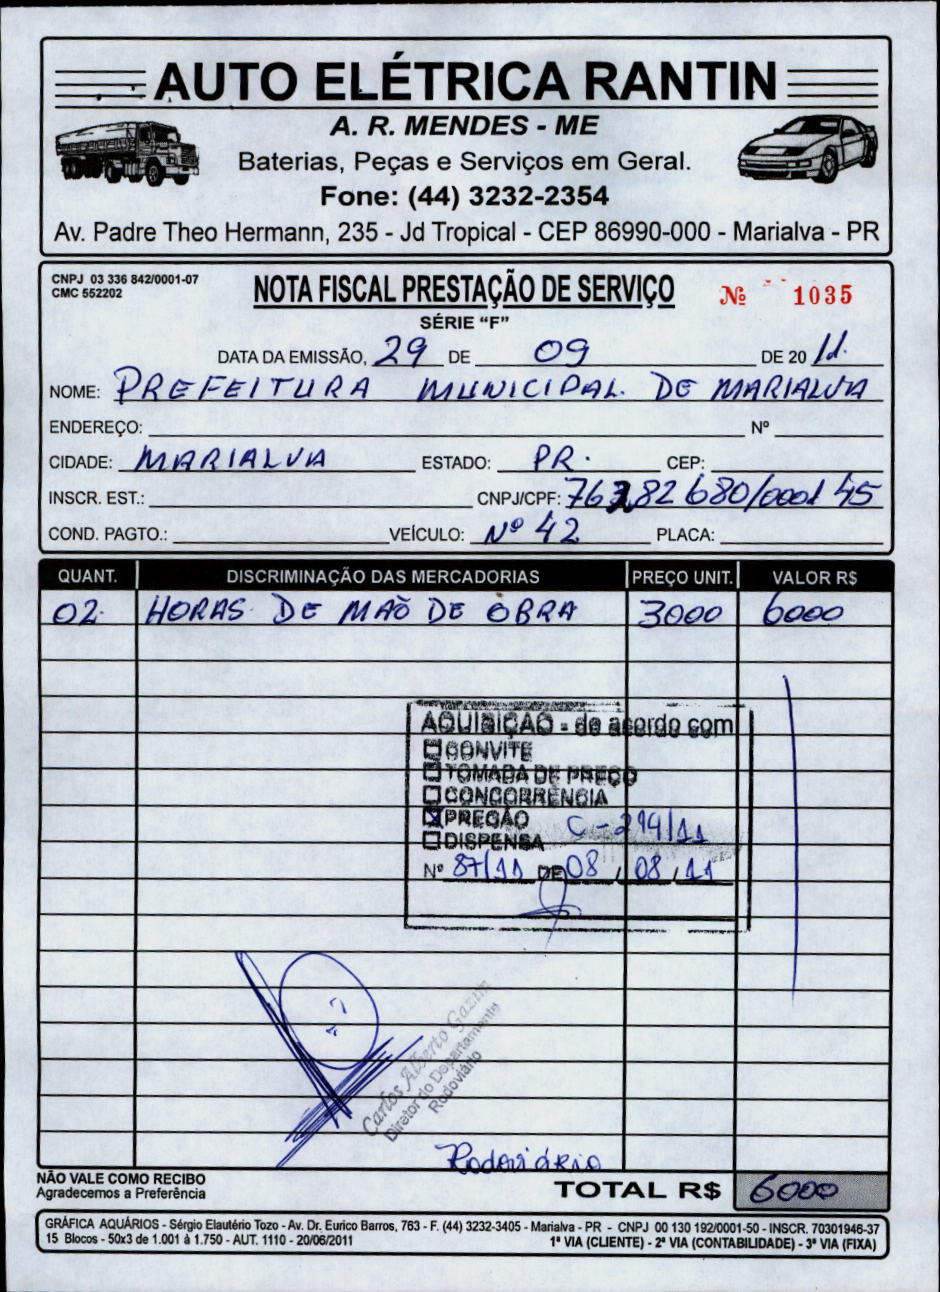 AUTO ELÉTRICA RANTIN
A. R. MENDES - ME
Baterias, Peças e Serviços em Geral.
Fone: (44) 3232-2354
Av. Padre Theo Hermann, 235 - Jd Tropical - CEP 86990-000 - Marialva - PR
CNPJ 03 336 842/0001-07
CMC 552202
NOTA FISCAL PRESTAÇÃO DE SERVIÇO
Nº 1035
SÉRIE "F"
DATA DA EMISSÃO, 29 DE 09 DE 20 11.
NOME: PREFEITURA MUNICIPAL. DE MARIALVA
ENDEREÇO: Nº
CIDADE: MARIALVA ESTADO: PR. CEP:
INSCR. EST.: CNPJ/CPF: 76282680/0001 45
COND. PAGTO.: VEÍCULO: Nº 42 PLACA:
QUANT. DISCRIMINAÇÃO DAS MERCADORIAS PREÇO UNIT. VALOR R$
02. HORAS DE MAÕ DE OBRA 3000 6000
AQUISIÇÃO - de acordo com
CONVITE
TOMADA DE PREÇO
CONCORRÊNCIA
PREGÃO C-214/11
DISPENSA
Nº 87/11 DE 08 / 08 / 11
Carlos Alberto Gazim
Diretor do Departamento
Rodoviário
Rodoviário
NÃO VALE COMO RECIBO
Agradecemos a Preferência
TOTAL R$ 6000
GRÁFICA AQUÁRIOS - Sérgio Elautério Tozo - Av. Dr. Eurico Barros, 763 - F. (44) 3232-3405 - Marialva - PR - CNPJ 00 130 192/0001-50 - INSCR. 70301946-37
15 Blocos - 50x3 de 1.001 à 1.750 - AUT. 1110 - 20/06/2011 1ª VIA (CLIENTE) - 2ª VIA (CONTABILIDADE) - 3ª VIA (FIXA)